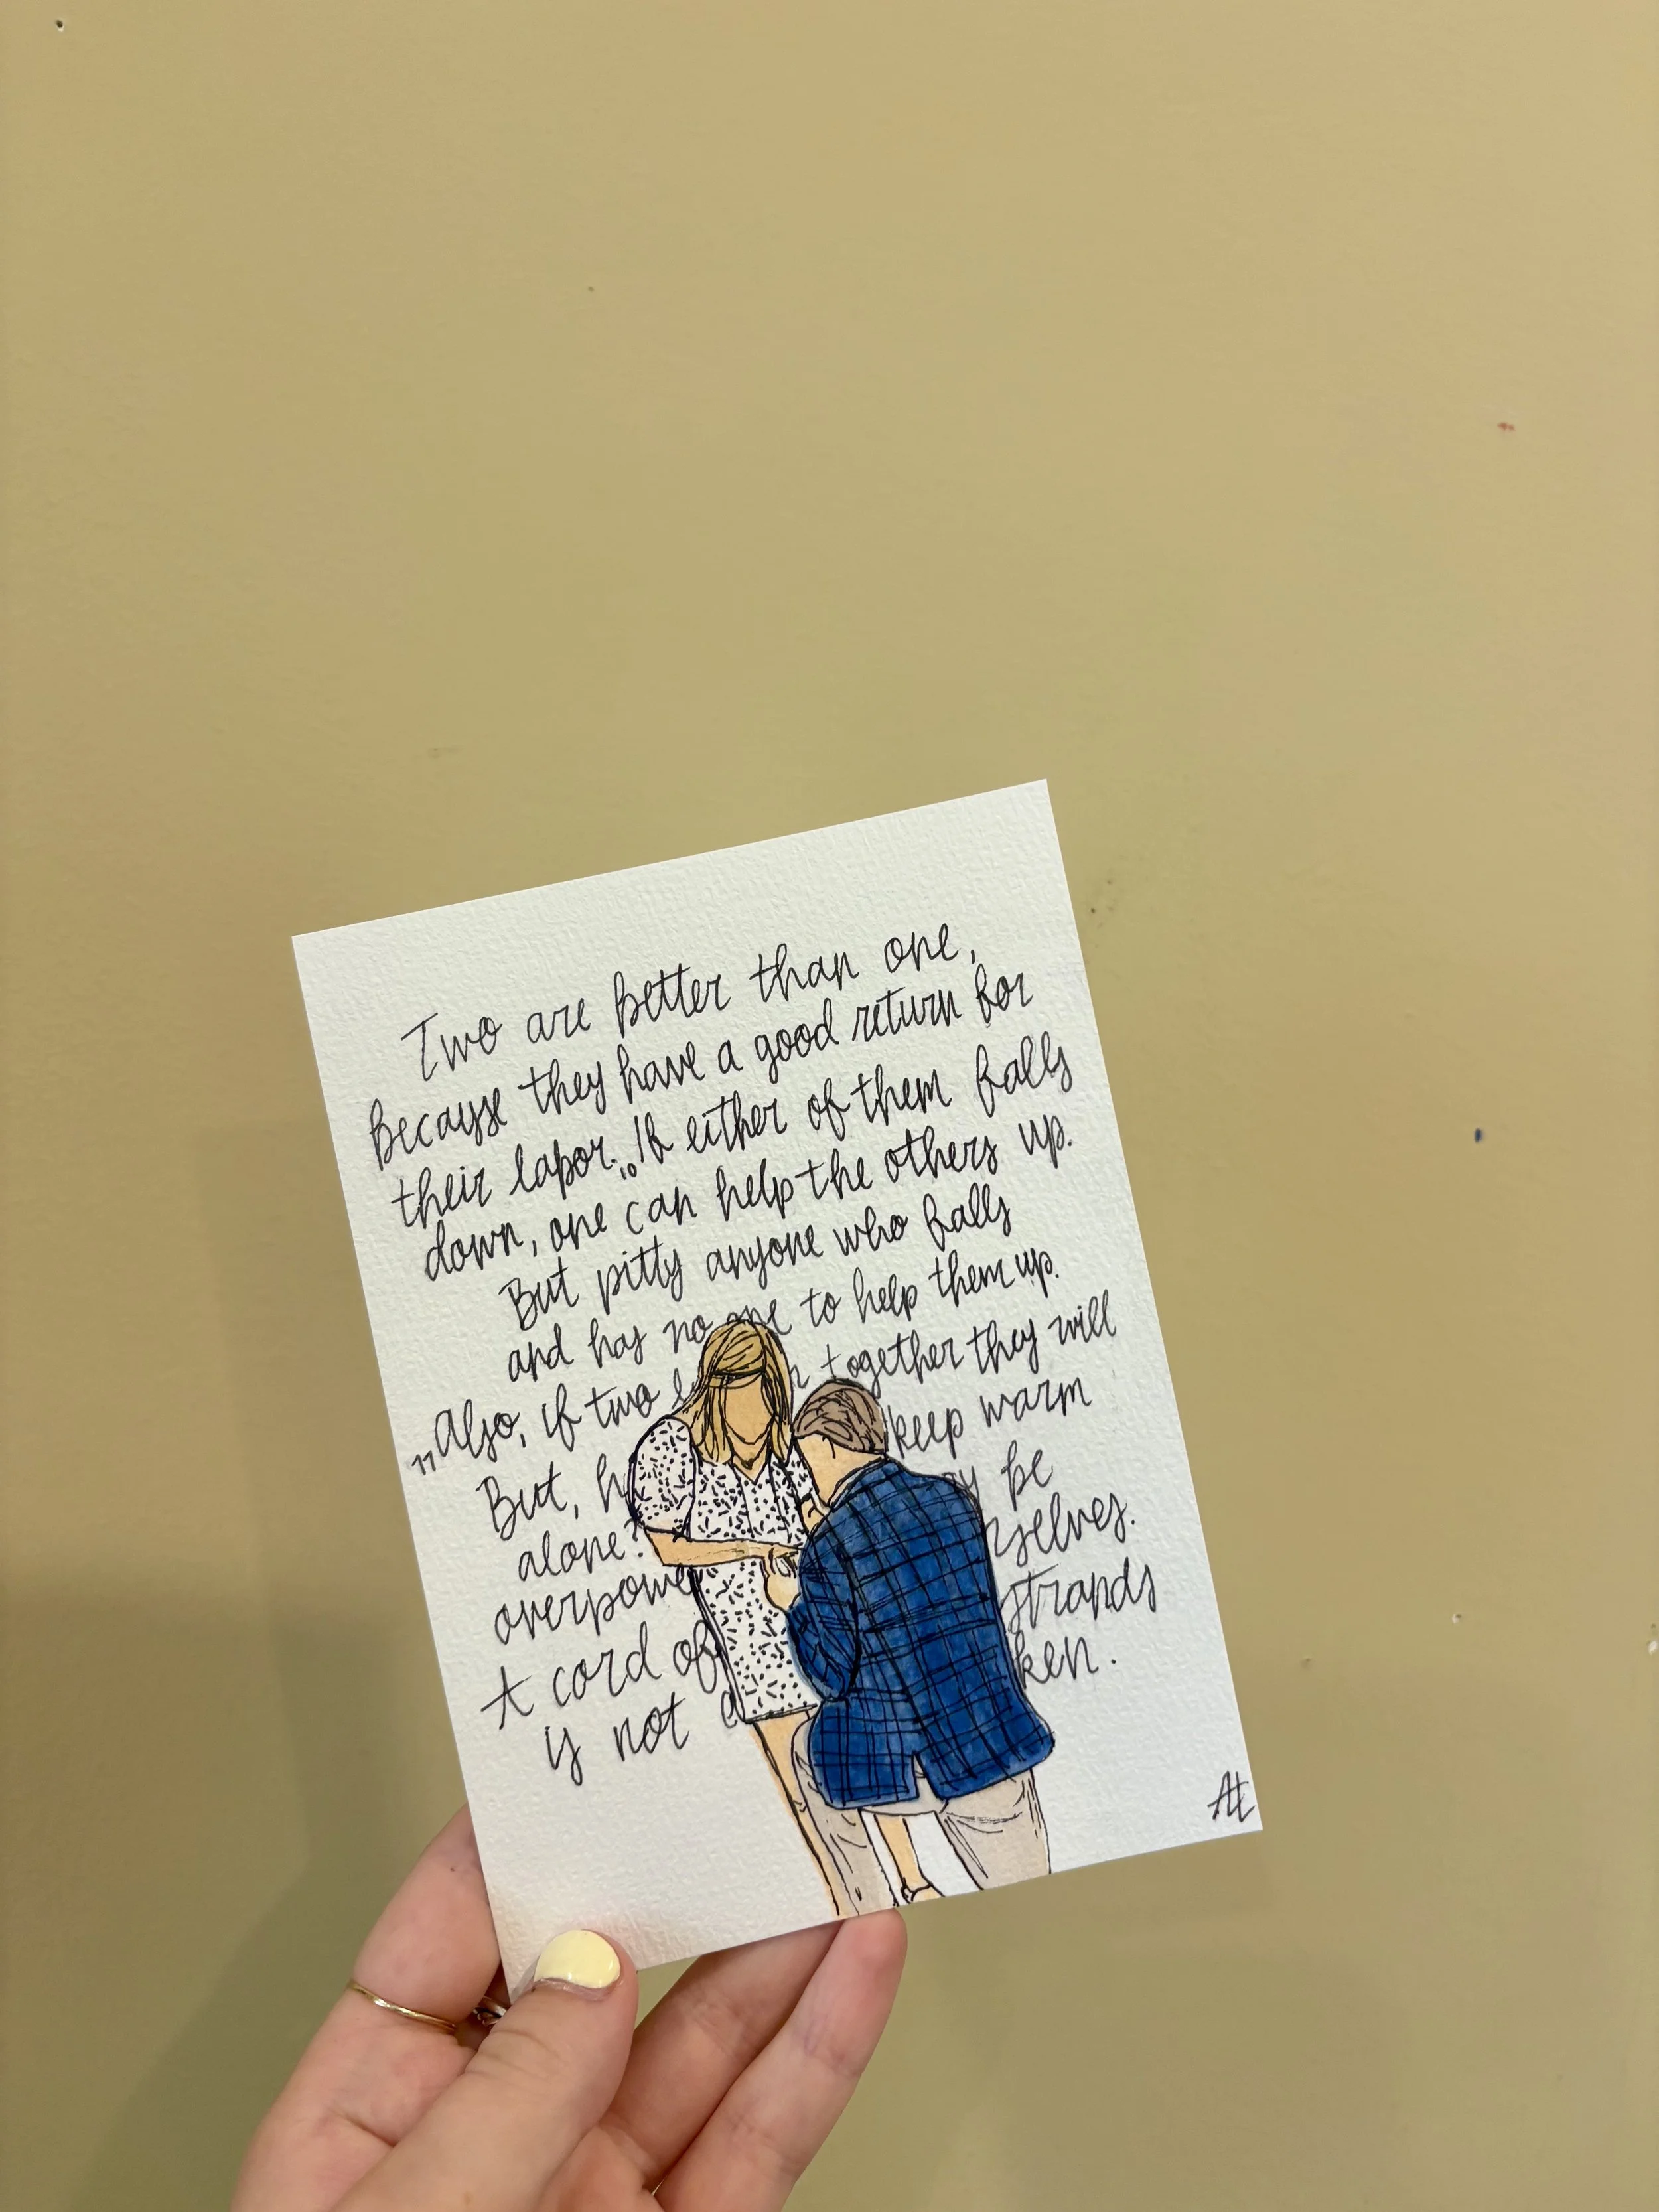 Two are better than one,
because they have a good return for
their labor. 10 If either of them falls
down, one can help the others up.
But pitty anyone who falls
and has no one to help them up.
11 Also, if two together they will
keep warm
But, be
alone?
overpowe rselves.
A cord of strands
is not ken.
AH